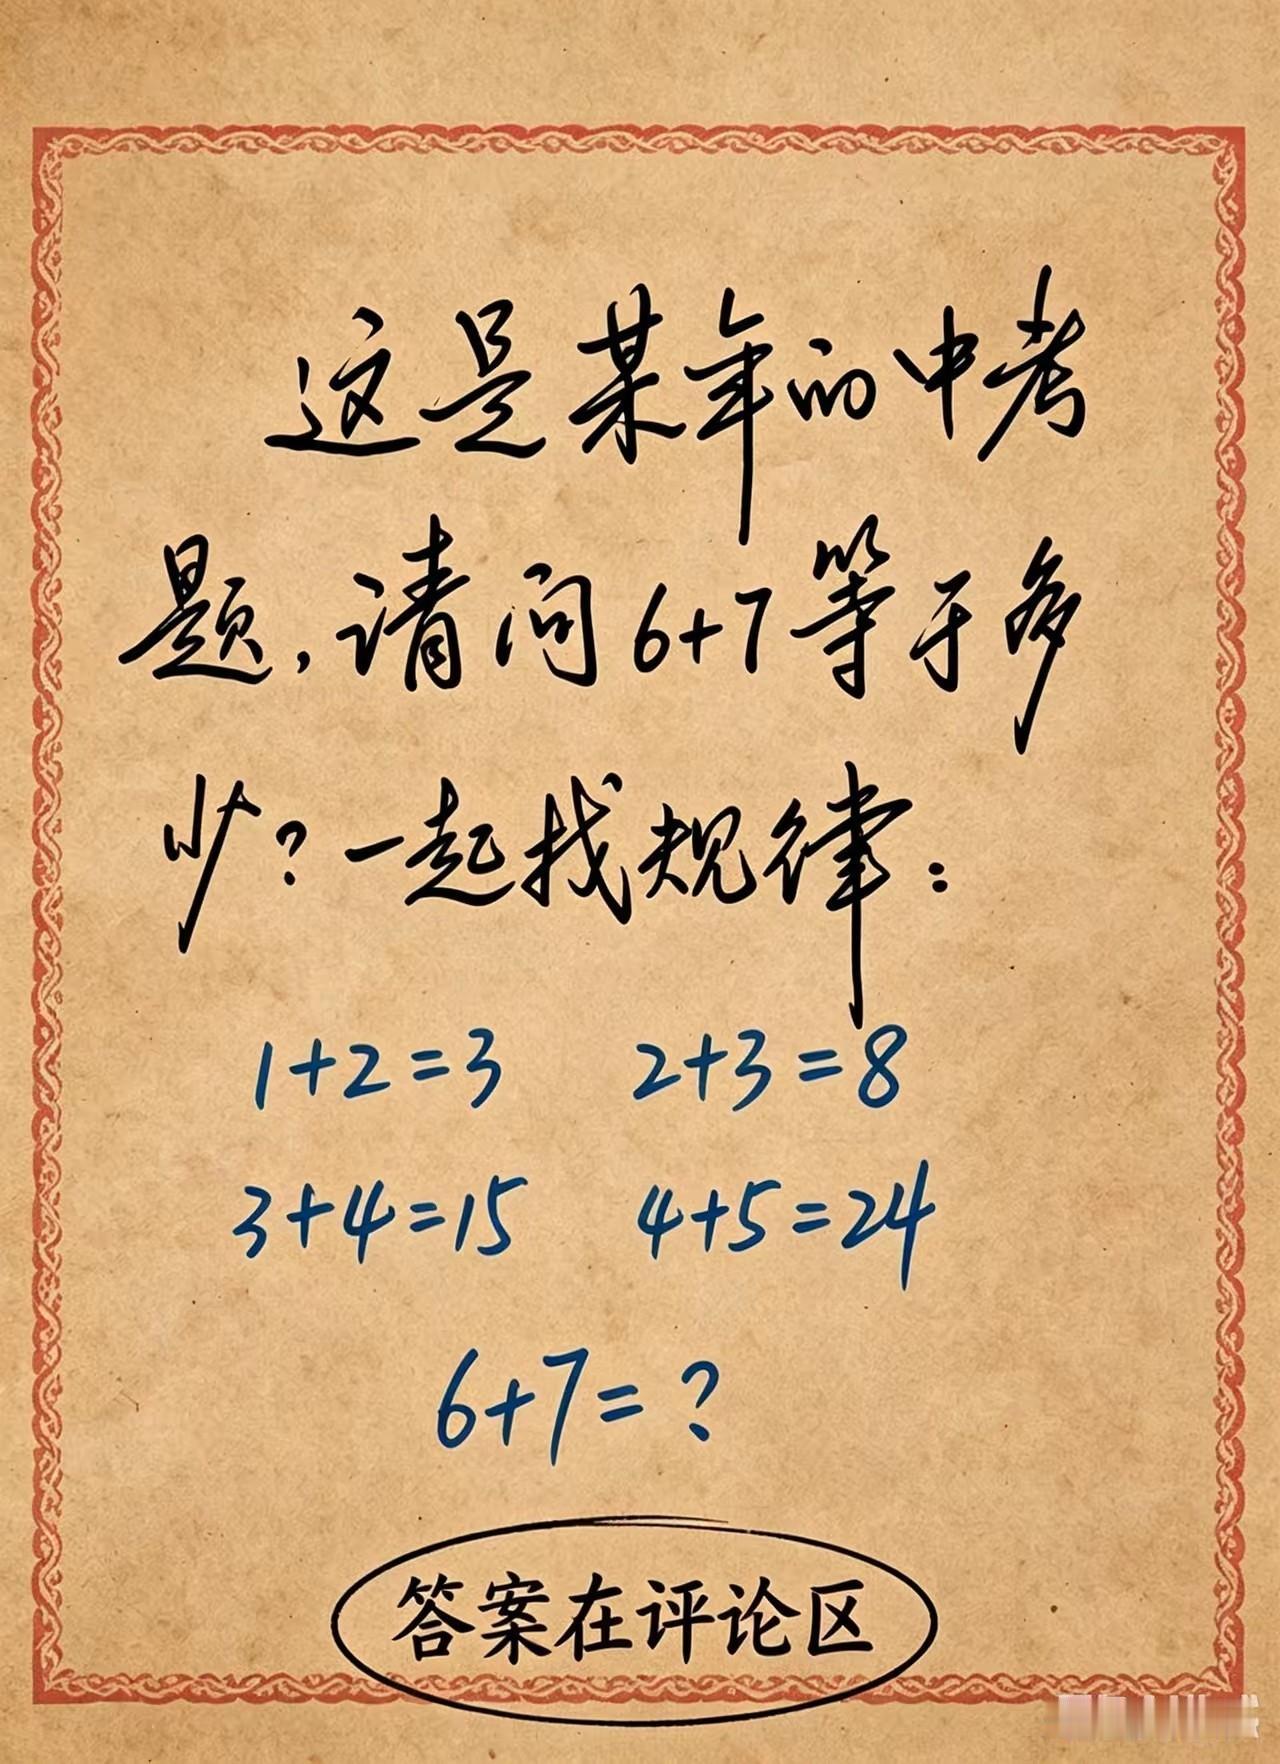 这是某年的中考
题,请问6+7等于多
少?一起找规律:
1+2=3 2+3=8
3+4=15 4+5=24
6+7=?
答案在评论区